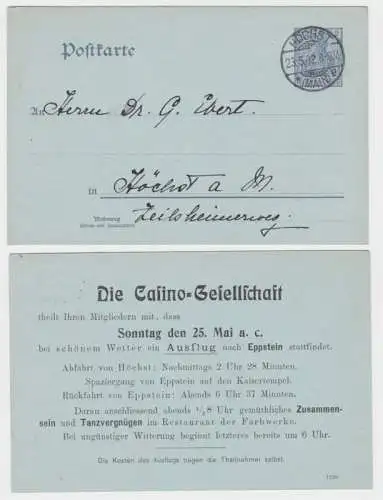 Postkarte
HÖCHST
(MAIN)
An Herrn Dr. G. Ebert.
in Höchst a M.
Wohnung
Zeilsheimerweg.
Die Casino-Gesellschaft
theilt Ihren Mitgliedern mit, dass
Sonntag den 25. Mai a. c.
bei schönem Wetter ein Ausflug nach Eppstein stattfindet.
Abfahrt von Höchst: Nachmittags 2 Uhr 28 Minuten.
Spaziergang von Eppstein auf den Kaisertempel.
Rückfahrt von Eppstein: Abends 6 Uhr 37 Minuten.
Daran anschliessend abends ½8 Uhr gemüthliches Zusammen-
sein und Tanzvergnügen im Restaurant der Farbwerke.
Bei ungünstiger Witterung beginnt letzteres bereits um 6 Uhr.
Die Kosten des Ausflugs tragen die Theilnehmer selbst.